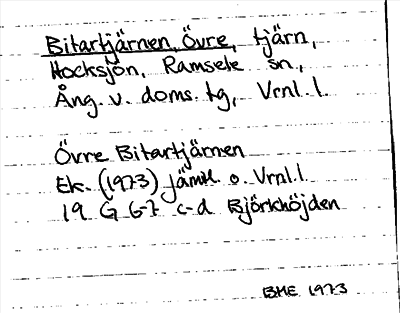 Bitartjärnen, Övre, tjärn,
Hocksjön, Ramsele sn.,
Ång. v. doms. tg, Vrnl. l.
Övre Bitartjärnen
Ek. (1973) jämtl o. Vrnl. l
19 G 6-7 c-d Björkhöjden
BME 1973